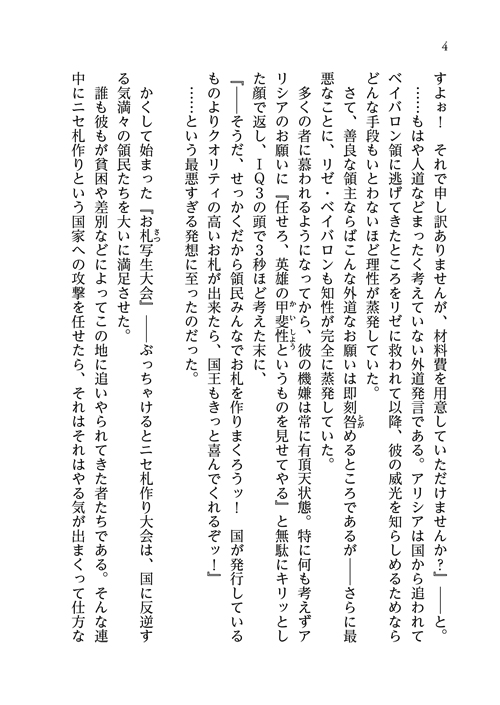 4
すよぉ！　それで申し訳ありませんが、材料費を用意していただけませんか？』――と。
……もはや人道などまったく考えていない外道発言である。アリシアは国から追われて
ベイバロン領に逃げてきたところをリゼに救われて以降、彼の威光を知らしめるためなら
どんな手段もいとわないほど理性が蒸発していた。
さて、善良な領主ならばこんな外道なお願いは即刻咎とがめるところであるが――さらに最
悪なことに、リゼ・ベイバロンも知性が完全に蒸発していた。
多くの者に慕われるようになってから、彼の機嫌は常に有頂天状態。特に何も考えずア
リシアのお願いに『任せろ、英雄の甲斐性かいしょうというものを見せてやる』と無駄にキリッとし
た顔で返し、ＩＱ３の頭で３秒ほど考えた末に、
『――そうだ、せっかくだから領民みんなでお札を作りまくろうッ！　国が発行している
ものよりクオリティの高いお札が出来たら、国王もきっと喜んでくれるぞッ！』
……という最悪すぎる発想に至ったのだった。
かくして始まった『お札さつ写生大会』――ぶっちゃけるとニセ札作り大会は、国に反逆す
る気満々の領民たちを大いに満足させた。
誰も彼もが貧困や差別などによってこの地に追いやられてきた者たちである。そんな連
中にニセ札作りという国家への攻撃を任せたら、それはそれはやる気が出まくって仕方な